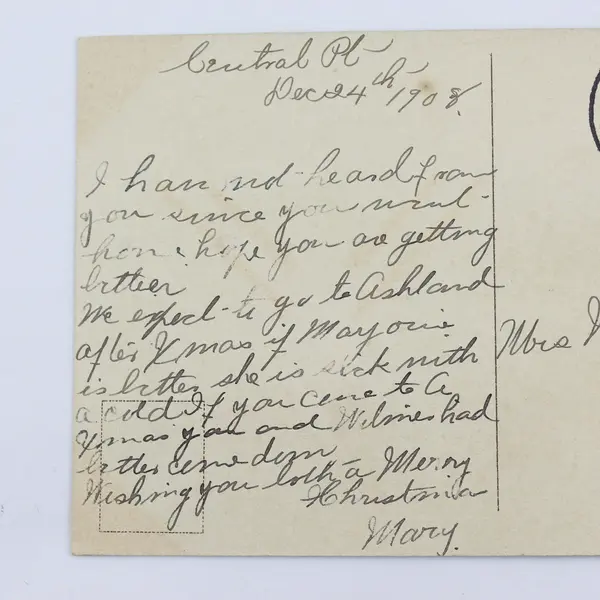 Central Pt
Dec 24th 1908.
I have not heard from
you since you went
home hope you are getting
better
We expect to go to Ashland
after Xmas if Marjorie
is better she is sick with
a cold If you come to A
Xmas you and had
better come down
Wishing you both a Merry
Christmas
Mary.
Mrs